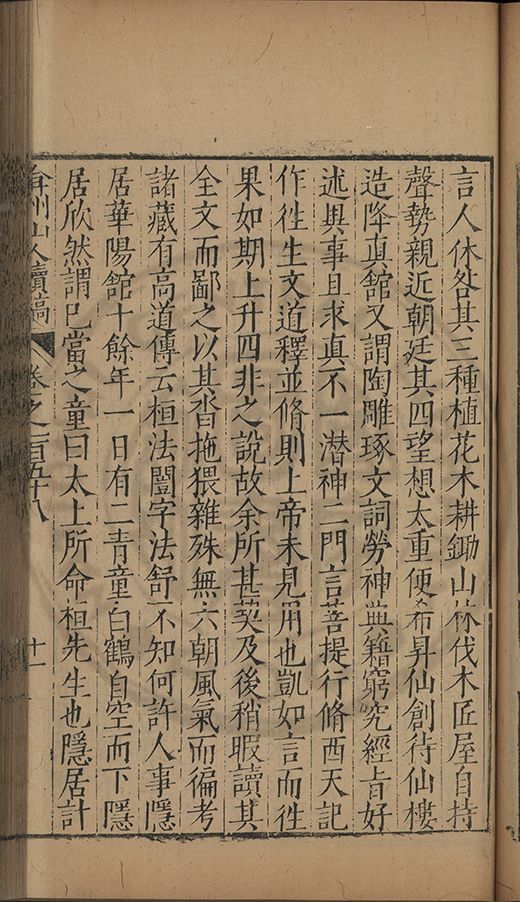 言人休咎其三種植花木耕鋤山林伐木匠屋自持
聲勢親近朝廷其四望想太重便希昇仙創待仙樓
造降真館又謂陶雕琢文詞勞神典籍窮究經旨好
述異事且求真不一潛神二門言菩提行脩西天記
作徃生文道釋並脩則上帝未見用也凱如言而徃
果如期上升四非之說故余所甚契及後稍暇讀其
全文而鄙之以其沓拖猥雜殊無六朝風氣而徧考
諸藏有高道傳云桓法闓字法舒不知何許人事隱
居華陽館十餘年一日有二青童白鶴自空而下隱
居欣然謂已當之童曰太上所命桓先生也隱居計
弇州山人續稿 卷之一百五十八 十一